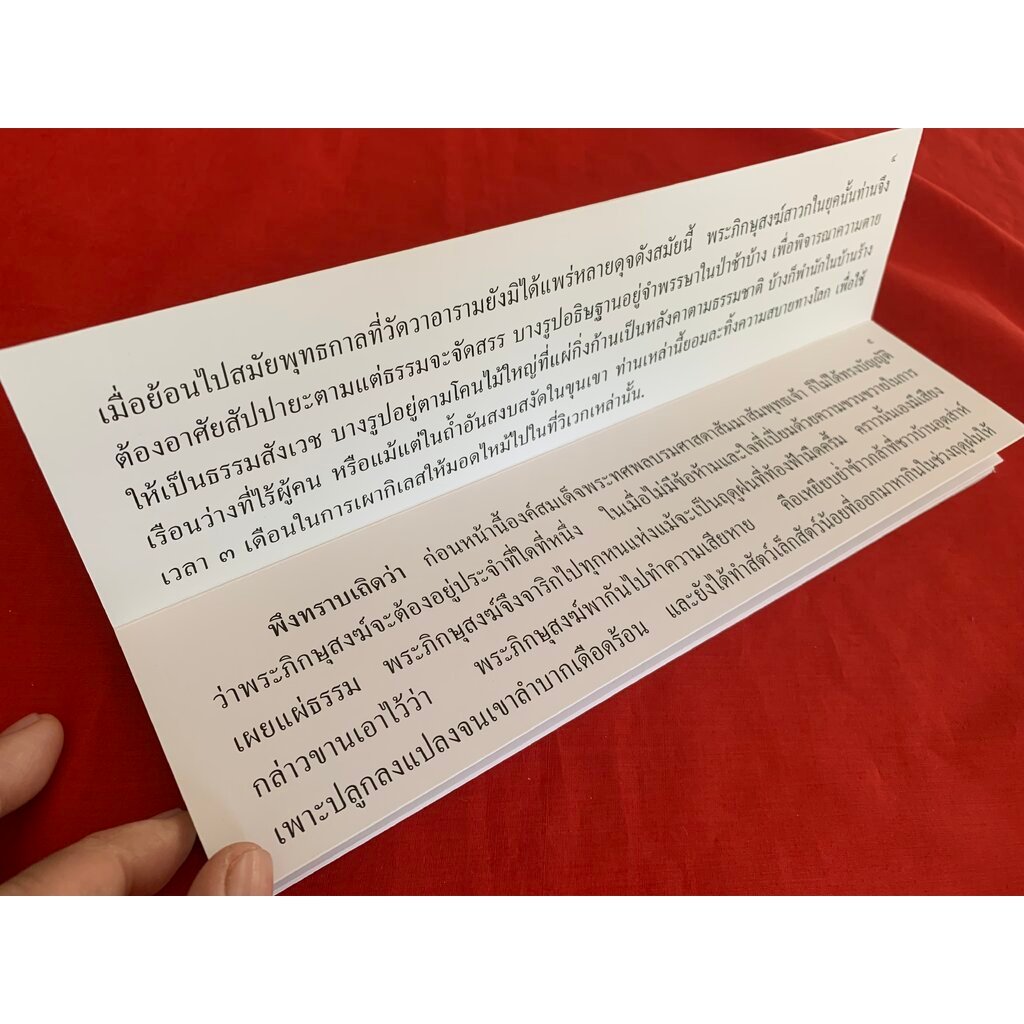 ๔
เมื่อย้อนไปสมัยพุทธกาลที่วัดวาอารามยังมิได้แพร่หลายดุจดังสมัยนี้ พระภิกษุสงฆ์สาวกในยุคนั้นท่านจึง
ต้องอาศัยสัปปายะตามแต่ธรรมจะจัดสรร บางรูปอธิษฐานอยู่จำพรรษาในป่าช้าบ้าง เพื่อพิจารณาความตาย
ให้เป็นธรรมสังเวช บางรูปอยู่ตามโคนไม้ใหญ่ที่แผ่กิ่งก้านเป็นหลังคาตามธรรมชาติ บ้างก็พำนักในบ้านร้าง
เรือนว่างที่ไร้ผู้คน หรือแม้แต่ในถ้ำอันสงบสงัดในขุนเขา ท่านเหล่านี้ยอมละทิ้งความสบายทางโลก เพื่อใช้
เวลา ๓ เดือนในการเผากิเลสให้มอดไหม้ไปในที่วิเวกเหล่านั้น.
พึงทราบเถิดว่า ก่อนหน้านี้องค์สมเด็จพระทศพลบรมศาสดาสัมมาสัมพุทธเจ้า ก็ไม่ได้ทรงบัญญัติ
ว่าพระภิกษุสงฆ์จะต้องอยู่ประจำที่ใดที่หนึ่ง ในเมื่อไม่มีข้อห้ามและใจที่เปี่ยมด้วยความขวนขวายในการ
เผยแผ่ธรรม พระภิกษุสงฆ์จึงจาริกไปทุกหนแห่งแม้จะเป็นฤดูฝนที่ท้องฟ้ามืดครึ้ม คราวนั้นเองมีเสียง
กล่าวขานเอาไว้ว่า พระภิกษุสงฆ์พากันไปทำความเสียหาย คือเหยียบย่ำข้าวกล้าที่ชาวบ้านอุตส่าห์
เพาะปลูกลงแปลงจนเขาลำบากเดือดร้อน และยังได้ทำสัตว์เล็กสัตว์น้อยที่ออกมาหากินในช่วงฤดูฝนให้